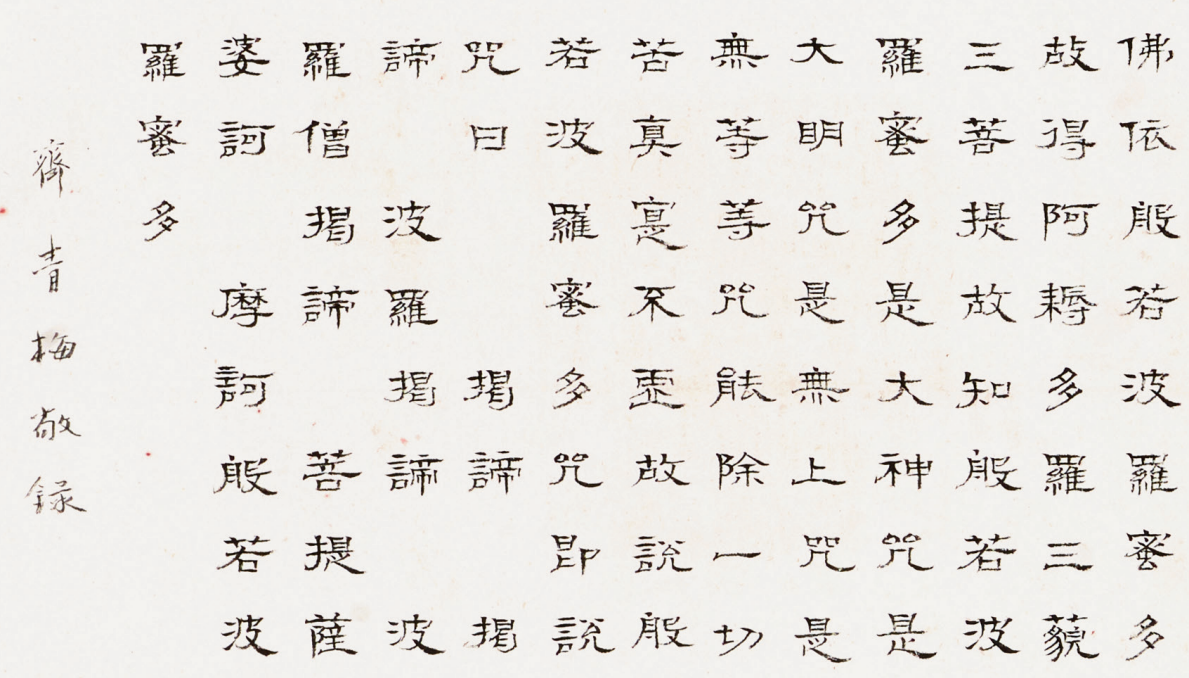 佛依般若波羅蜜多
故得阿耨多羅三藐
三菩提故知般若波
羅蜜多是大神咒是
大明咒是無上咒是
無等等咒能除一切
苦真寔不虛故說般
若波羅蜜多咒即說
咒曰 揭諦 揭
諦 波羅揭諦 波
羅僧揭諦 菩提薩
婆訶 摩訶般若波
羅蜜多
齊青梅敬録